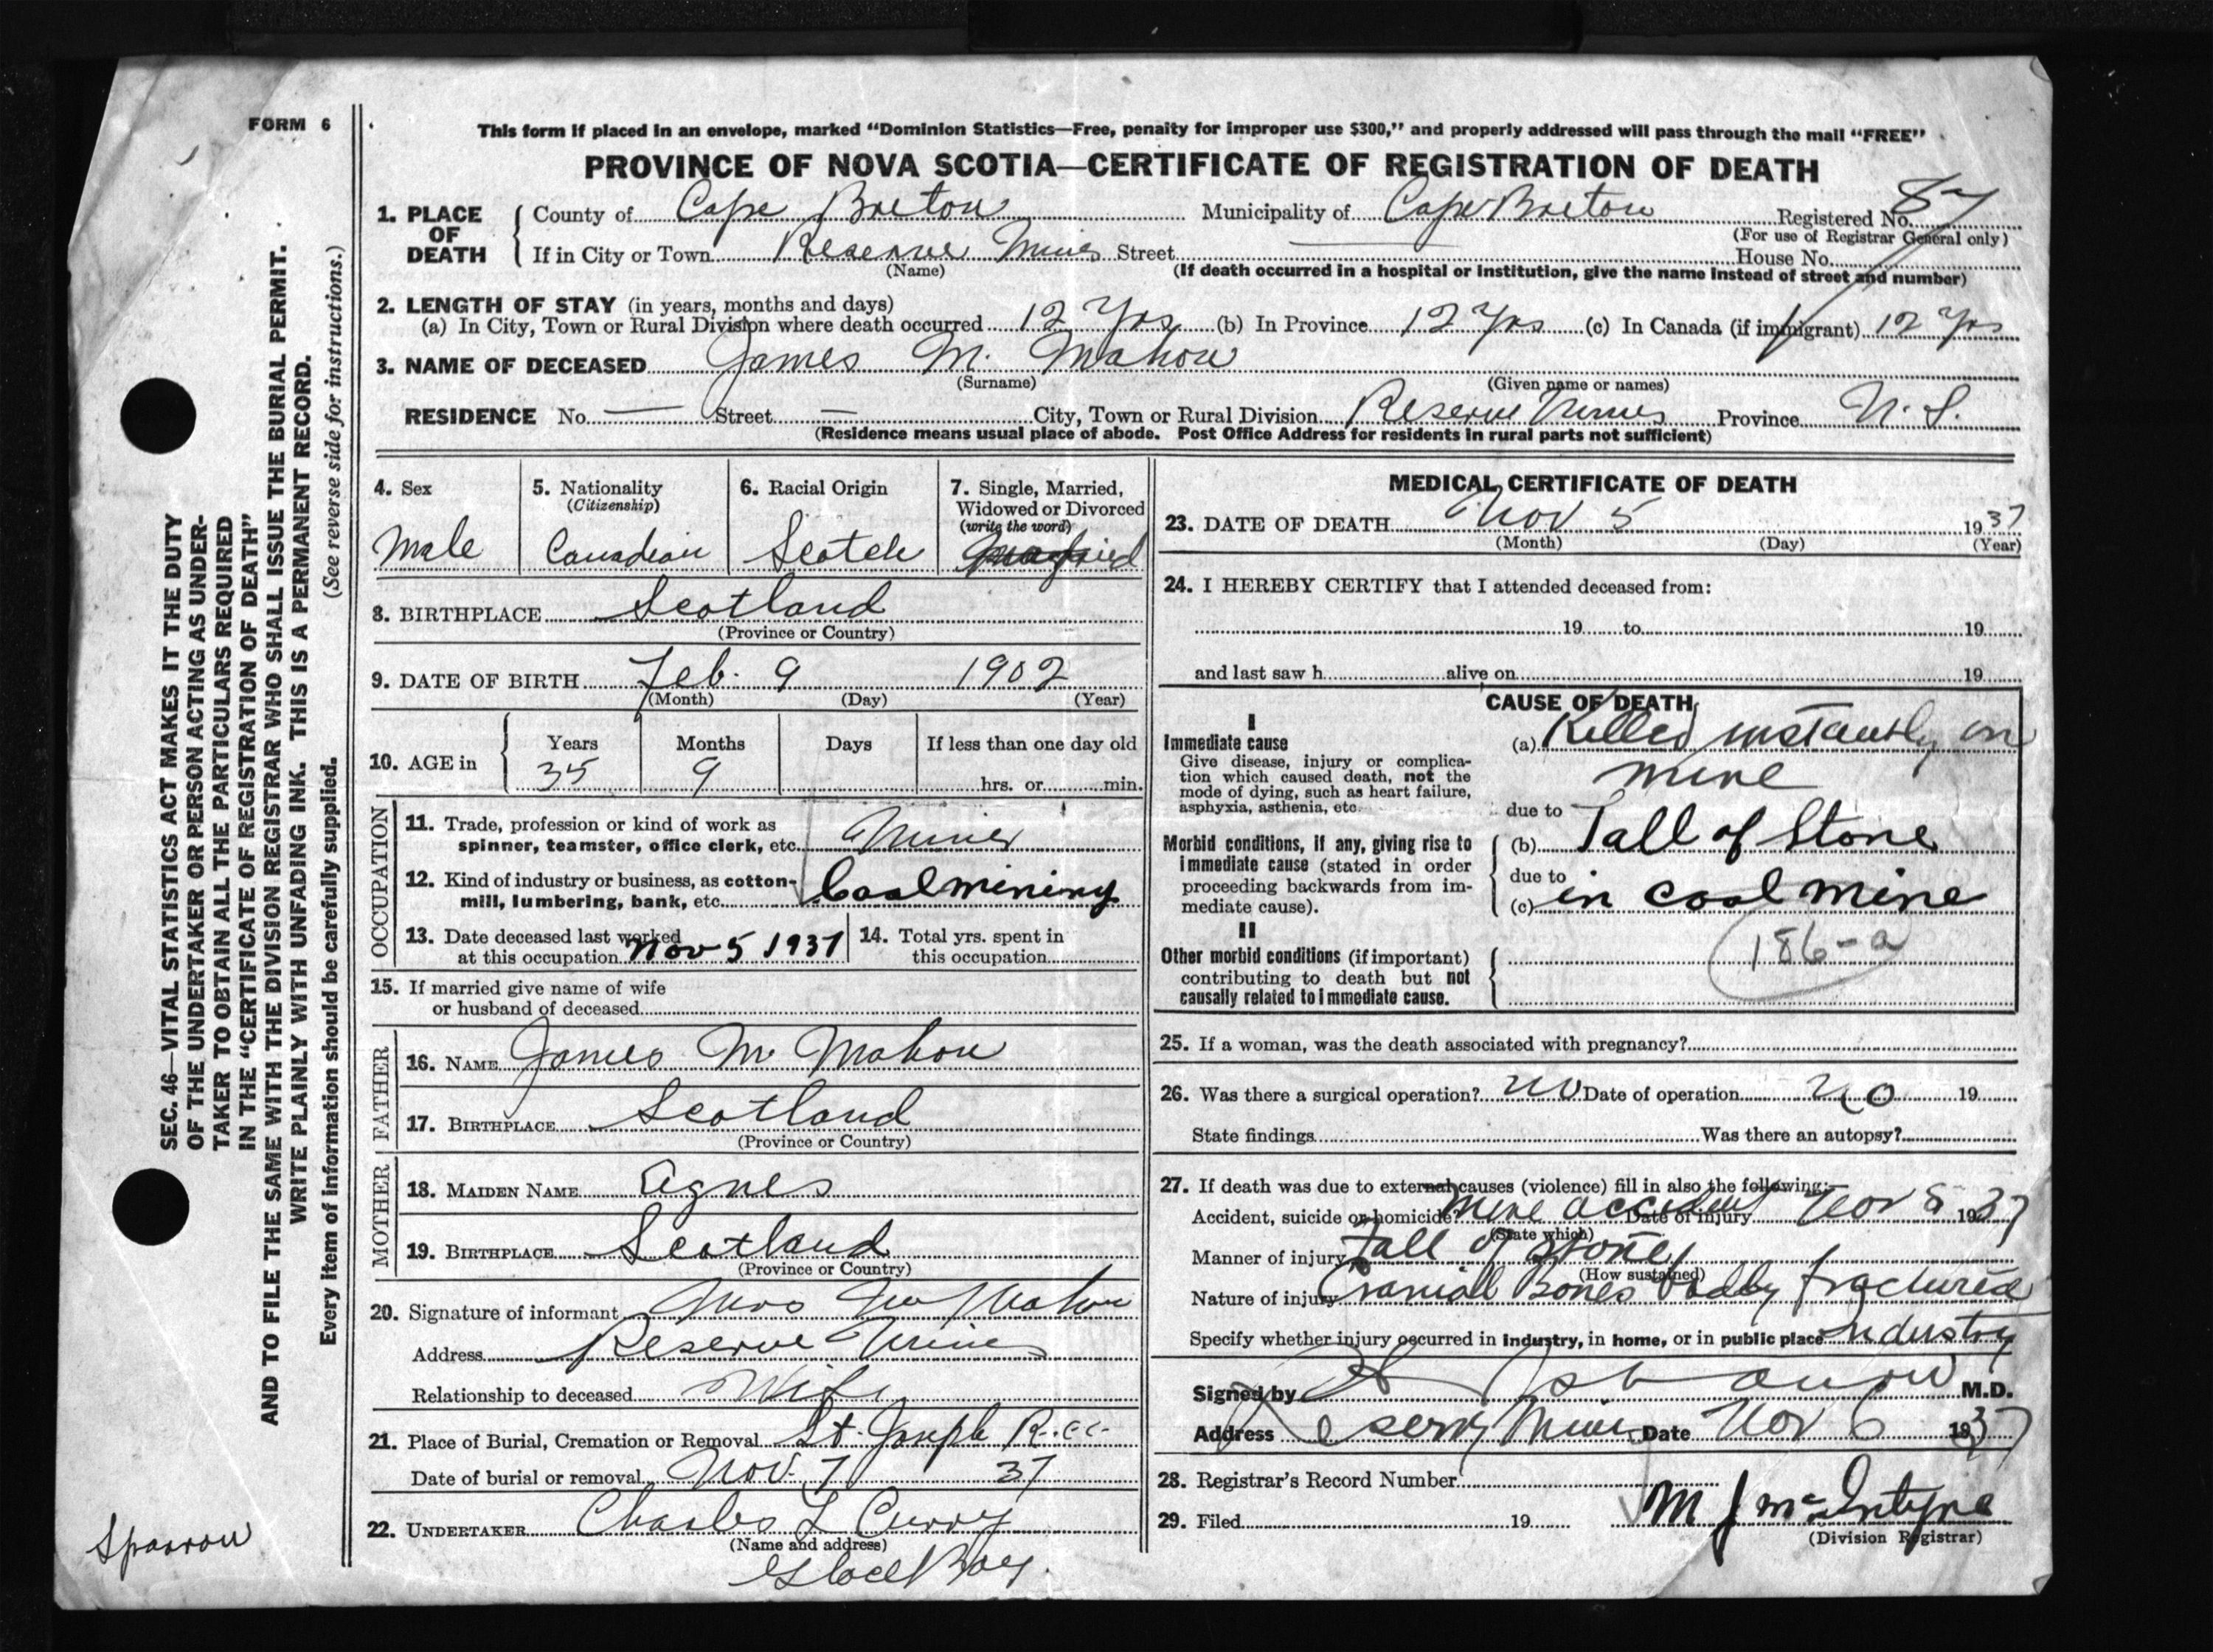 FORM 6
This form if placed in an envelope, marked "Dominion Statistics—Free, penalty for improper use $300," and properly addressed will pass through the mail "FREE"
PROVINCE OF NOVA SCOTIA—CERTIFICATE OF REGISTRATION OF DEATH
1. PLACE OF DEATH County of Cape Breton Municipality of Cape Breton Registered No. 87
(For use of Registrar General only)
If in City or Town Reserve Mines Street House No.
(Name) (If death occurred in a hospital or institution, give the name instead of street and number)
2. LENGTH OF STAY (in years, months and days)
(a) In City, Town or Rural Division where death occurred 12 Yrs (b) In Province 12 Yrs (c) In Canada (if immigrant) 12 Yrs
3. NAME OF DECEASED James Mc Mahon
(Surname) (Given name or names)
RESIDENCE No. — Street — City, Town or Rural Division Reserve Mines Province N. S.
(Residence means usual place of abode. Post Office Address for residents in rural parts not sufficient)
4. Sex
Male
5. Nationality
(Citizenship)
Canadian
6. Racial Origin
Scotch
7. Single, Married,
Widowed or Divorced
(write the word)
Married
8. BIRTHPLACE Scotland
(Province or Country)
9. DATE OF BIRTH Feb. 9 1902
(Month) (Day) (Year)
10. AGE in
Years Months Days If less than one day old
35 9 hrs. or min.
OCCUPATION
11. Trade, profession or kind of work as
spinner, teamster, office clerk, etc. Miner
12. Kind of industry or business, as cotton-
mill, lumbering, bank, etc. Coal mining
13. Date deceased last worked
at this occupation Nov 5 1937
14. Total yrs. spent in
this occupation
15. If married give name of wife
or husband of deceased
FATHER
16. NAME James Mc Mahon
17. BIRTHPLACE Scotland
(Province or Country)
MOTHER
18. MAIDEN NAME Agnes
19. BIRTHPLACE Scotland
(Province or Country)
20. Signature of informant Mrs Mc Mahon
Address Reserve Mines
Relationship to deceased Wife
21. Place of Burial, Cremation or Removal St. Joseph R.CC.
Date of burial or removal Nov. 7 37
22. UNDERTAKER Charles L Curry
(Name and address)
Glace Bay.
MEDICAL CERTIFICATE OF DEATH
23. DATE OF DEATH Nov 5 1937
(Month) (Day) (Year)
24. I HEREBY CERTIFY that I attended deceased from:
19 to 19
and last saw h alive on 19
CAUSE OF DEATH
I
Immediate cause
Give disease, injury or complica-
tion which caused death, not the
mode of dying, such as heart failure,
asphyxia, asthenia, etc.
(a) Killed instantly in
mine
due to
Morbid conditions, if any, giving rise to
immediate cause (stated in order
proceeding backwards from im-
mediate cause).
(b) Fall of Stone
due to
(c) in coal mine
186-a
II
Other morbid conditions (if important)
contributing to death but not
causally related to immediate cause.
25. If a woman, was the death associated with pregnancy?
26. Was there a surgical operation? no Date of operation no 19
State findings Was there an autopsy?
27. If death was due to external causes (violence) fill in also the following:—
Accident, suicide or homicide? Mine accident Date of injury Nov 5 1937
(State which)
Manner of injury Fall of stone
(How sustained)
Nature of injury Cranial Bones badly fractured
Specify whether injury occurred in industry, in home, or in public place Industry
Signed by M.D.
Address Reserve Mines Date Nov 6 1937
28. Registrar's Record Number
29. Filed 19 M J McIntyre
(Division Registrar)
SEC. 46—VITAL STATISTICS ACT MAKES IT THE DUTY
OF THE UNDERTAKER OR PERSON ACTING AS UNDER-
TAKER TO OBTAIN ALL THE PARTICULARS REQUIRED
IN THE "CERTIFICATE OF REGISTRATION OF DEATH"
AND TO FILE THE SAME WITH THE DIVISION REGISTRAR WHO SHALL ISSUE THE BURIAL PERMIT.
WRITE PLAINLY WITH UNFADING INK. THIS IS A PERMANENT RECORD.
Every item of information should be carefully supplied. (See reverse side for instructions.)
Sparrow